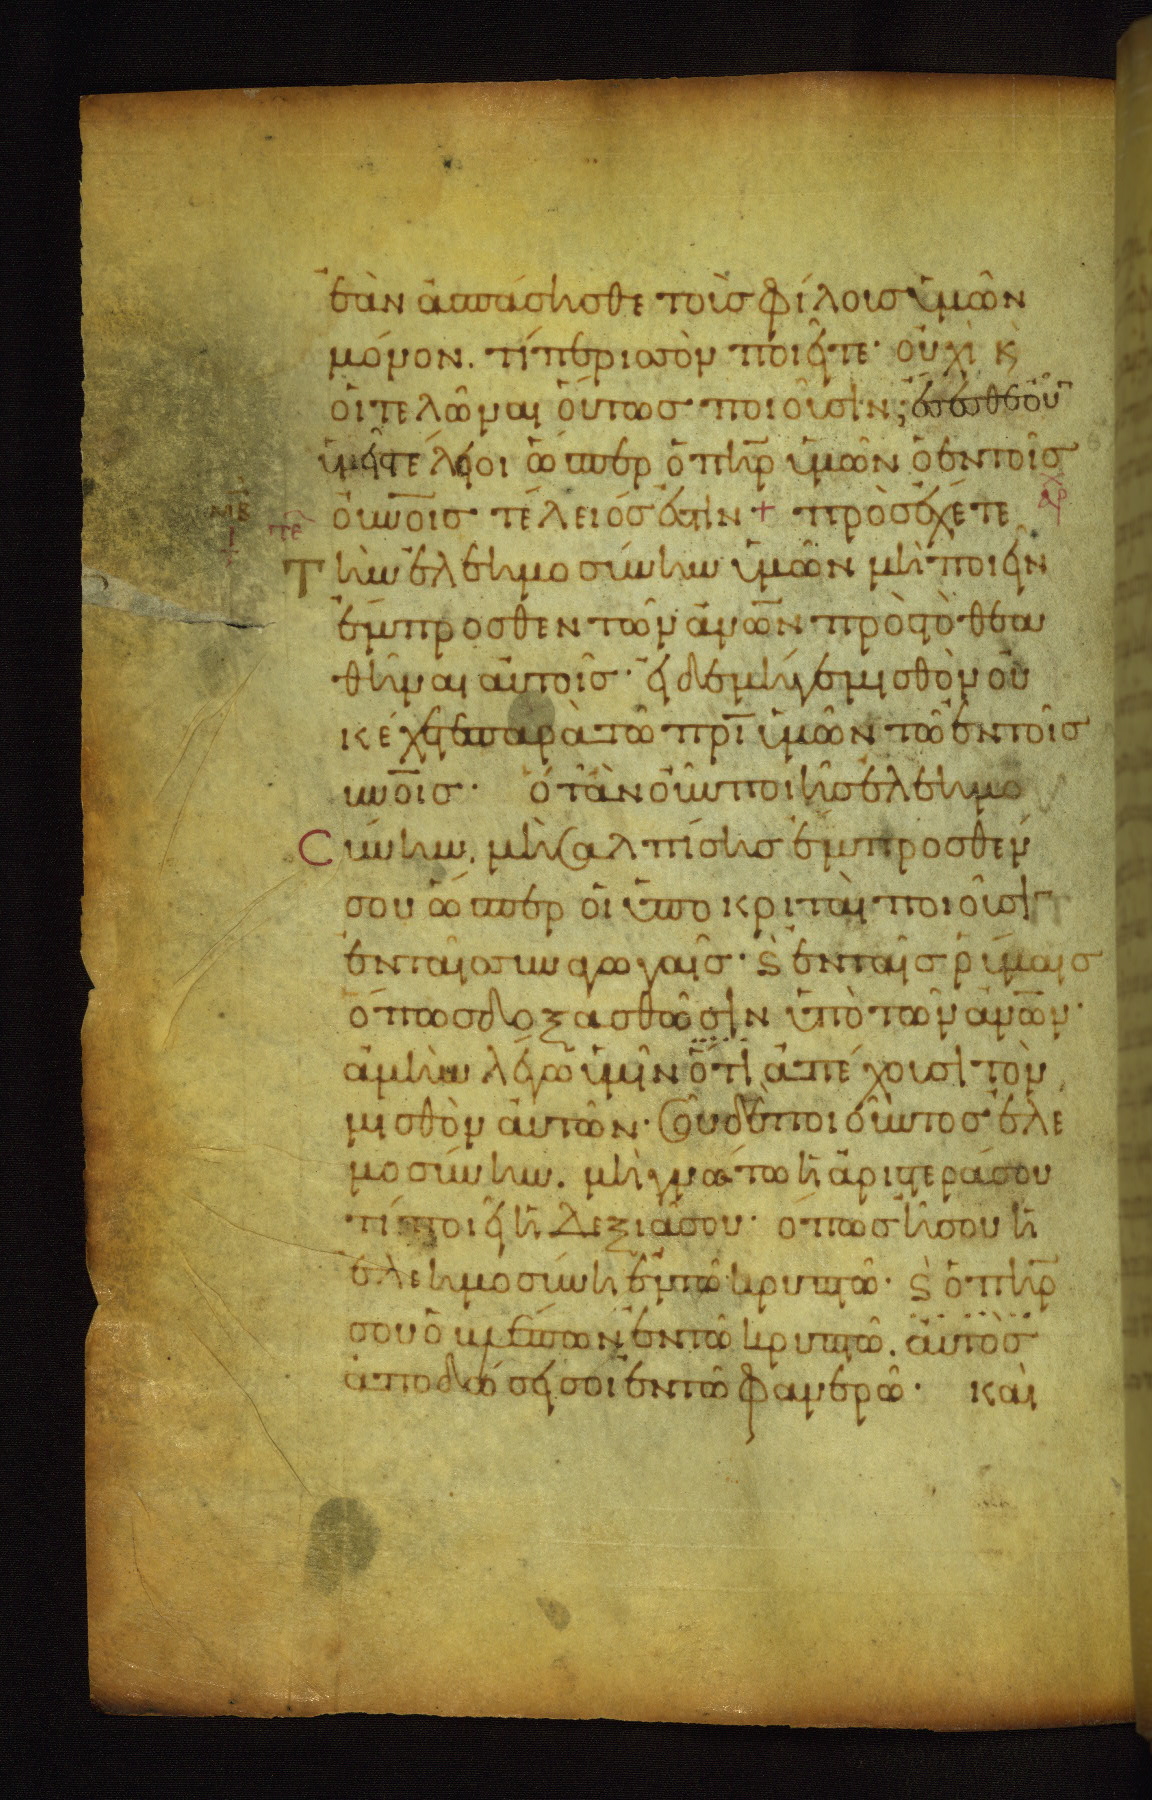 ἐὰν ἀσπάσησθε τοὺς φίλοις ὑμῶν
μόνον. τί περισσὸν ποιεῖτε· οὐχὶ κ̀
οἱ τελῶναι οὕτως ποιοῦσιν; ἔσεσθε οὖν
ὑμεῖς τέλειοι ὥσπερ ὁ πη̅ρ ὑμῶν ὁ ἐν τοῖς
οὐνο̅ις τέλειός ἐστιν + προσέχετε
Τὴν ἐλεημοσύνην ὑμῶν μὴ ποιεῖν
ἔμπροσθεν τῶν ἀνω̅ν πρὸς τὸ θεα
θῆναι αὐτοῖς· εἰ δὲ μήγε μισθὸν οὐ
κ ἔχετε παρὰ τῶ πρι̅ ὑμῶν τῶ ἐν τοῖς
υνο̅ις· ὅταν οὖν ποιῆς ἐλεημο
Σύνην, μὴ σαλπίσης ἔμπροσθέν
σου ὥσπερ οἱ ὑποκριταὶ ποιοῦσιν
ἐν ταῖς συναγωγαῖς· ϛ̀ ἐν ταῖς ῥύμαις
ὅπως δοξασθῶσιν ὑπὸ τῶν ἀνω̅ν·
ἀμὴν λέγω ὑμῖν ὅτι ἀπέχουσι τὸν
μισθὸν αὐτῶν· σοῦ δὲ ποιοῦντος ἐλε
μοσύνην. μὴ γνώτω ἡ ἀριστερά σου
τί ποιεῖ ἡ δεξιά σου· ὅπως ἦ σου ἡ
ἐλεημοσύνη ἐν τῶ κρυπτῶ· ϛ̀ ὁ πη̅ρ
σου ὁ βλέπων ἐν τῶ κρυπτῶ. αὐτὸς
ἀποδώσει σοι ἐν τῶ φανερῶ· καὶ